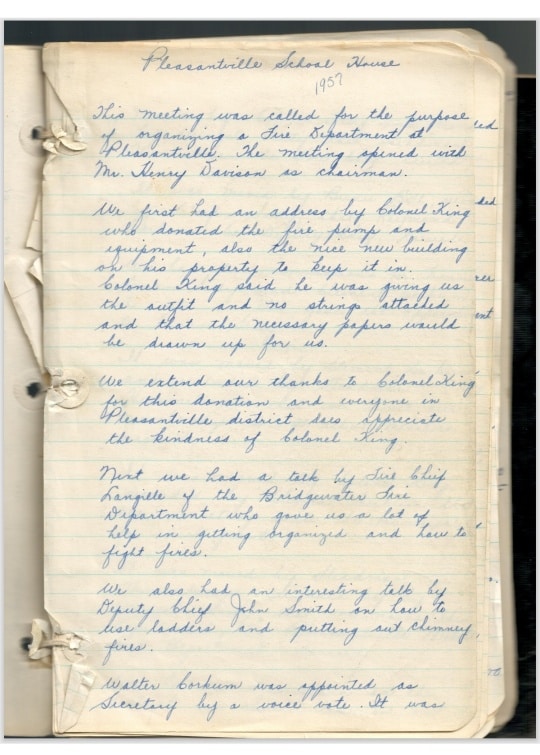 Pleasantville School House
1957
This meeting was called for the purpose
of organizing a Fire Department at
Pleasantville. The meeting opened with
Mr. Henry Davison as chairman.
We first had an address by Colonel King
who donated the fire pump and
equipment, also the nice new building
on his property to keep it in.
Colonel King said he was giving us
the outfit and no strings attached
and that the necessary papers would
be drawn up for us.
We extend our thanks to Colonel King
for this donation and everyone in
Pleasantville district does appreciate
the kindness of Colonel King.
Next we had a talk by Fire Chief
Langille of the Bridgewater Fire
Department who gave us a lot of
help in getting organized and how to
fight fires.
We also had an interesting talk by
Deputy Chief John Smith on how to
use ladders and putting out chimney
fires.
Walter Corkum was appointed as
Secretary by a voice vote. It was